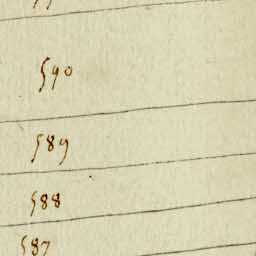 590
589
588
587